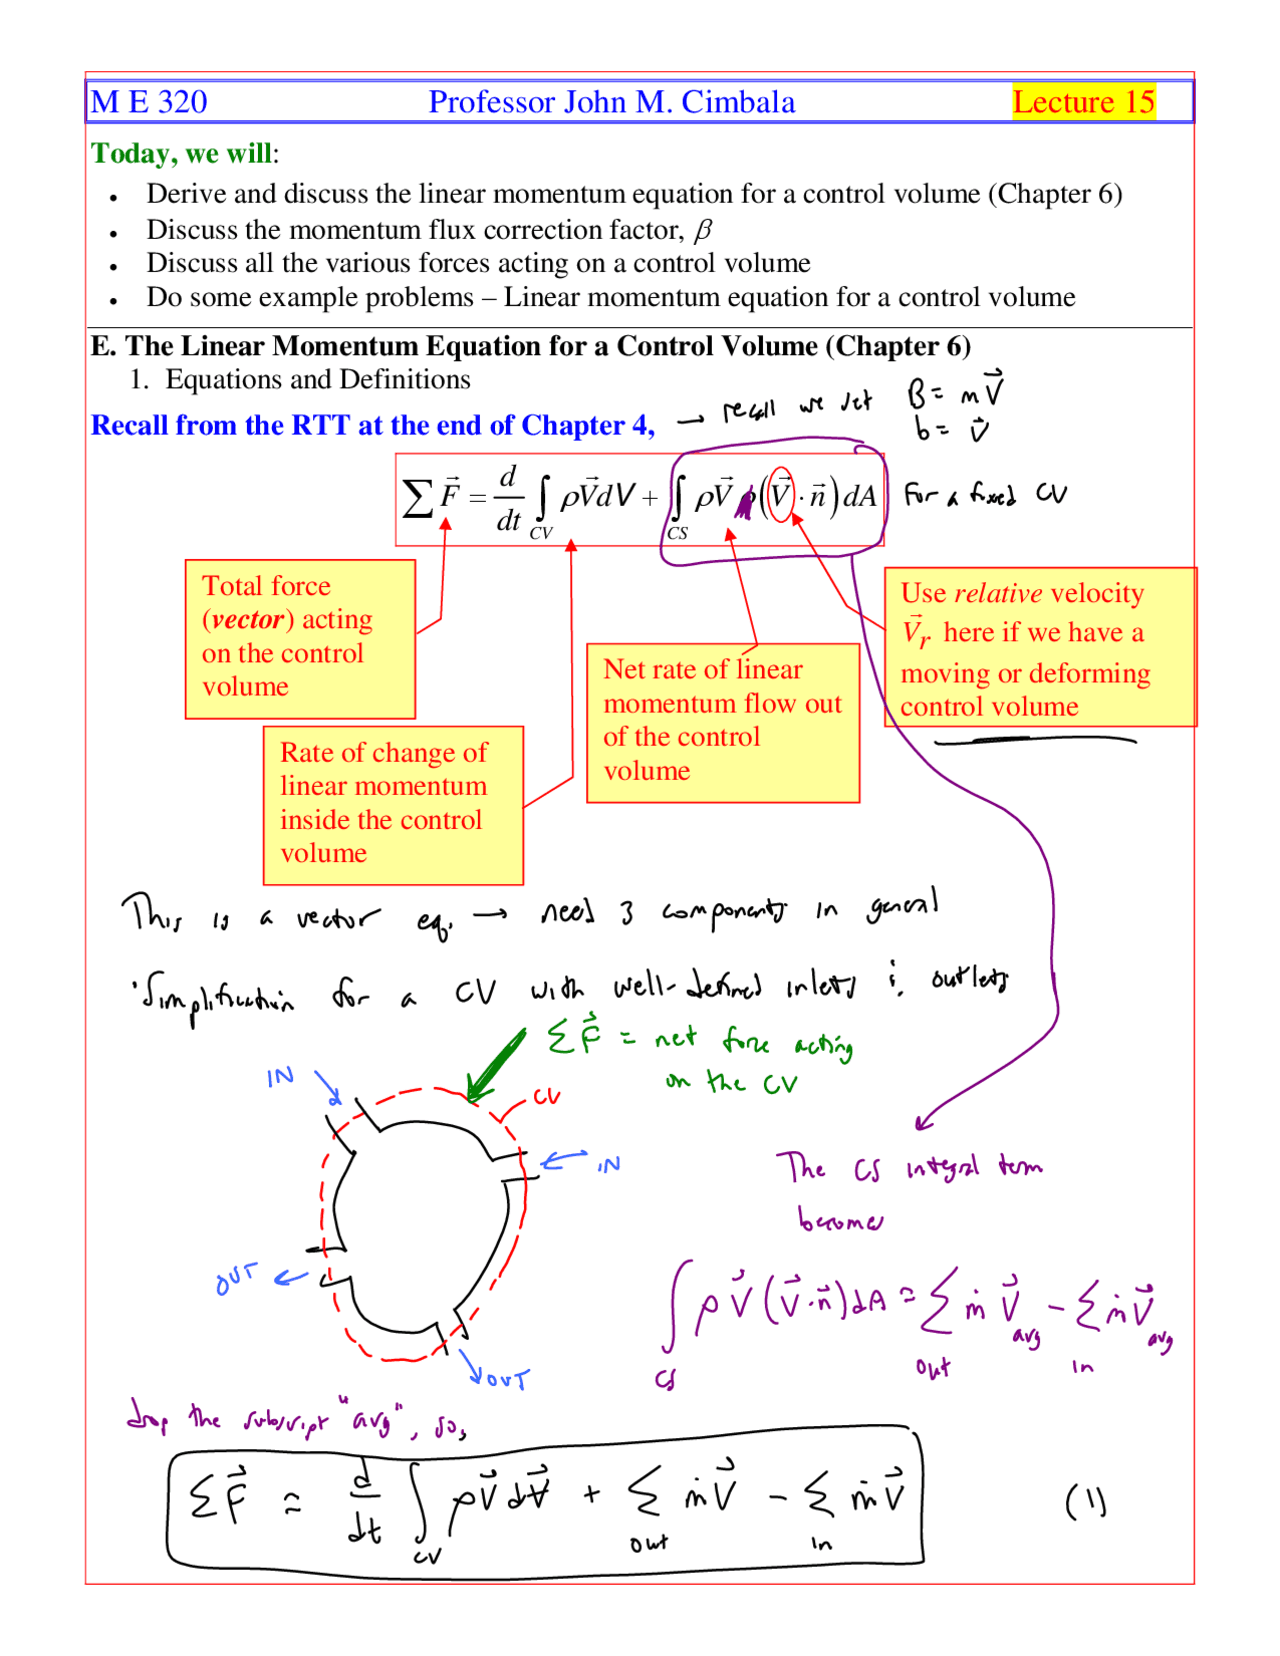 M E 320 Professor John M. Cimbala Lecture 15
Today, we will:
• Derive and discuss the linear momentum equation for a control volume (Chapter 6)
• Discuss the momentum flux correction factor, β
• Discuss all the various forces acting on a control volume
• Do some example problems – Linear momentum equation for a control volume
E. The Linear Momentum Equation for a Control Volume (Chapter 6)
1. Equations and Definitions
Recall from the RTT at the end of Chapter 4, → recall we set B = mV⃗
b = V⃗
∑ F⃗ = d/dt ∫_CV ρV⃗ dV + ∫_CS ρV⃗ (V⃗ · n⃗) dA For a fixed CV
Total force
(vector) acting
on the control
volume
Rate of change of
linear momentum
inside the control
volume
Net rate of linear
momentum flow out
of the control
volume
Use relative velocity
V⃗r here if we have a
moving or deforming
control volume
This is a vector eq. → need 3 components in general
• Simplification for a CV with well-defined inlets & outlets
∑ F⃗ = net force acting
on the CV
IN
CV
IN
OUT
OUT
The CS integral term
becomes
∫_CS ρV⃗ (V⃗ · n⃗) dA = ∑_out ṁ V⃗avg − ∑_in ṁ V⃗avg
drop the subscript "avg", so,
∑ F⃗ = d/dt ∫_CV ρV⃗ dV + ∑_out ṁV⃗ − ∑_in ṁV⃗ (1)